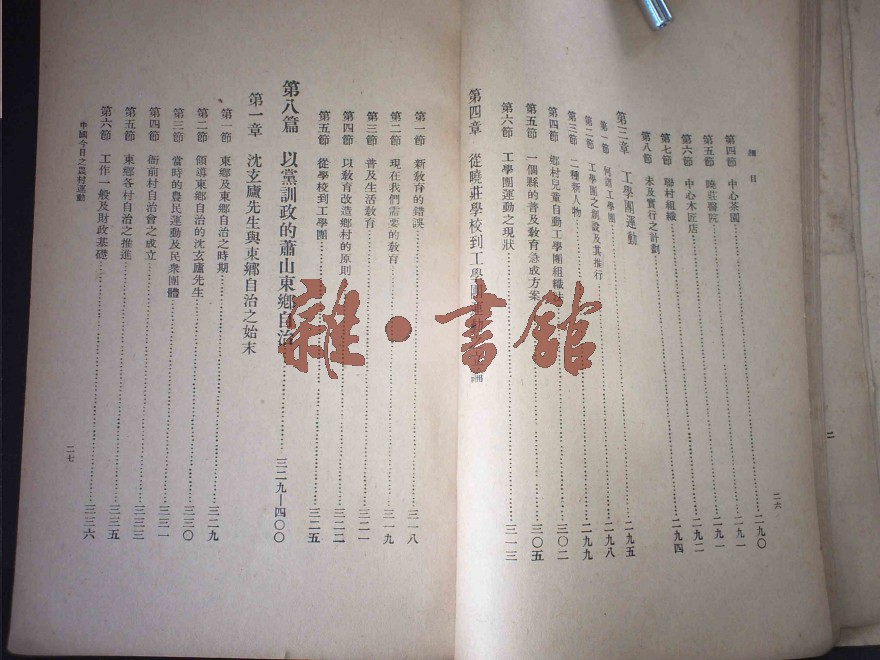 細目
二六
第四節 中心茶園……二九〇
第五節 曉莊醫院……二九一
第六節 中心木匠店……二九一
第七節 聯村組織……二九二
第八節 未及實行之計劃……二九四
第三章 工學團運動
第一節 何謂工學團……二九五
第二節 工學團之創設及其推行……二九八
第三節 二種新人物……二九九
第四節 鄉村兒童自動工學團組織法……三〇二
第五節 一個縣的普及敎育急成方案……三〇五
第六節 工學團運動之現狀……三一三
第四章 從曉莊學校到工學團
第一節 新敎育的錯誤……三一八
第二節 現在我們需要的敎育……三一九
第三節 普及生活敎育……三二一
第四節 以敎育改造鄉村的原則……三二二
第五節 從學校到工學團……三二五
第八篇 以黨訓政的蕭山東鄉自治……三二九—四〇〇
第一章 沈玄廬先生與東鄉自治之始末
第一節 東鄉及東鄉自治之時期……三二九
第二節 領導東鄉自治的沈玄廬先生……三三〇
第三節 當時的農民運動及民衆團體……三三一
第四節 衙前村自治會之成立……三三三
第五節 東鄉各村自治之推進……三三五
第六節 工作一般及財政基礎……三三六
中國今日之農村運動
二七
雜·書館